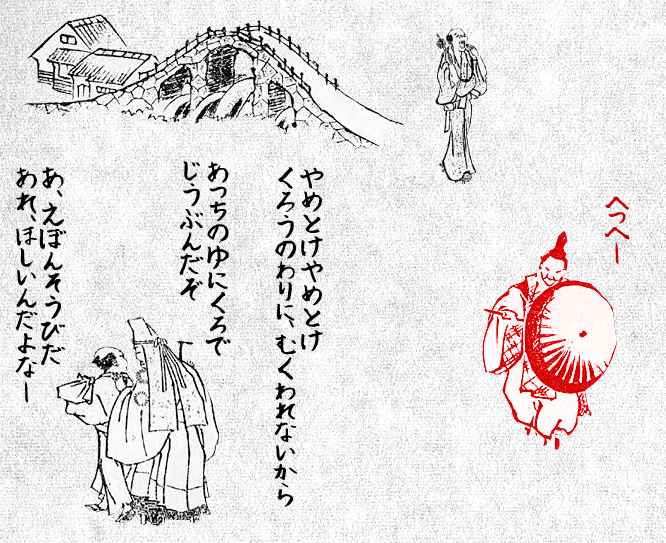 へっへー
やめとけやめとけ
くろうのわりに、むくわれないから
あっちのゆにくろで
じうぶんだぞ
あ、えぼんそうびだ
あれ、ほしいんだよなー